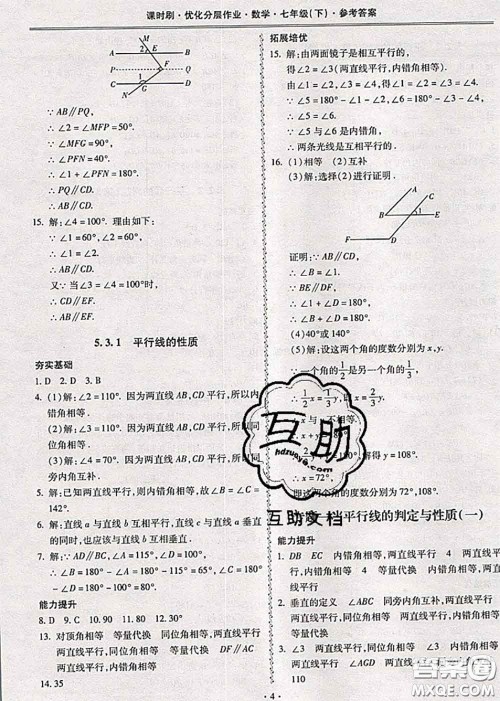 课时刷·优化分层作业·数学·七年级(下)·参考答案
M
2
E
A
B
P
F
C
1
D
G
N
∵AB∥PQ,
∴∠2=∠MFP=50°.
∵∠MFG=90°,
∴∠PFN=40°.
∴∠1+∠PFN=180°.
∴PQ∥CD.
∴AB∥CD.
15. 解:∠4=100°. 理由如下:
∵∠1=60°,∠2=60°,
∴∠1=∠2.
∴AB∥CD.
又∵当∠3=∠4=100°时,
∴CD∥EF.
∴AB∥EF.
5.3.1 平行线的性质
夯实基础
1. D 2. D 3. B
4. (1)解:∠2=110°. 因为两直线AB,CD平行,所以内
错角相等.
(2)解:∠3=110°. 因为两直线AB,CD平行,所以同
位角相等.
(3)解:∠4=70°. 因为两直线AB,CD平行,所以同旁
内角互补.
5. 解:已知两直线平行,则内错角相等,故∠C=∠B=
142°.
6. 解:直线a与直线b互相平行,直线c与直线a垂直
的同时,也应该与直线b互相垂直.
7. 解:∵AD∥BC,∠A=115°,∠D=100°,
∴∠B=180°-∠A=65°,
∠C=180°-∠D=80°.
能力提升
8. D 9. C 10. 90 11. 80 12. 30°
13. 对顶角相等 等量代换 同位角相等,两直线平行
两直线平行,同位角相等 等量代换 DF∥AC
两直线平行,内错角相等
14. 35
拓展培优
15. 解:由两面镜子是相互平行的,
得∠2=∠3(两直线平行,内错角相等).
∴∠1=∠2=∠3=∠4.
∵∠5=180°-∠1-∠2,∠6=180°-∠3-∠4,
∴∠5=∠6.
∵∠5与∠6是内错角,
∴两条光线是互相平行的.
16. (1)相等 (2)互补
(3)解:选择(2)进行证明.
C
A
1
B
E
F
D
证明:∵AB∥CD,
∴∠1=∠2.
∵BE∥DF,
∴∠2+∠D=180°.
∴∠1+∠D=180°.
(4)相等或互补
(5)解:设这两个角的度数分别为x,y.
∴1/2x=1/3y,得x=2/3y.
∴x与
不相等.
∴x=72°,
y=108°.
即这两个角的度数分别为72°,108°.
平行线的判定与性质(一)
能力提升
1. DB EC 内错角相等,两直线平行 两直线平
行,内错角相等 等量代换 同位角相等,两直线
平行
2. 垂直的定义 ∠ABC 同旁内角互补,两直线平行
∠1 两直线平行,内错角相等 等量代换
3. ∠3 两直线平行,同位角相等 等量代换
两直线平行 ∠AGD 两直线平行,同旁内角互补
110
·4·
互助
hdzuoye.com
互助文档
答案圈
MXQE.COM